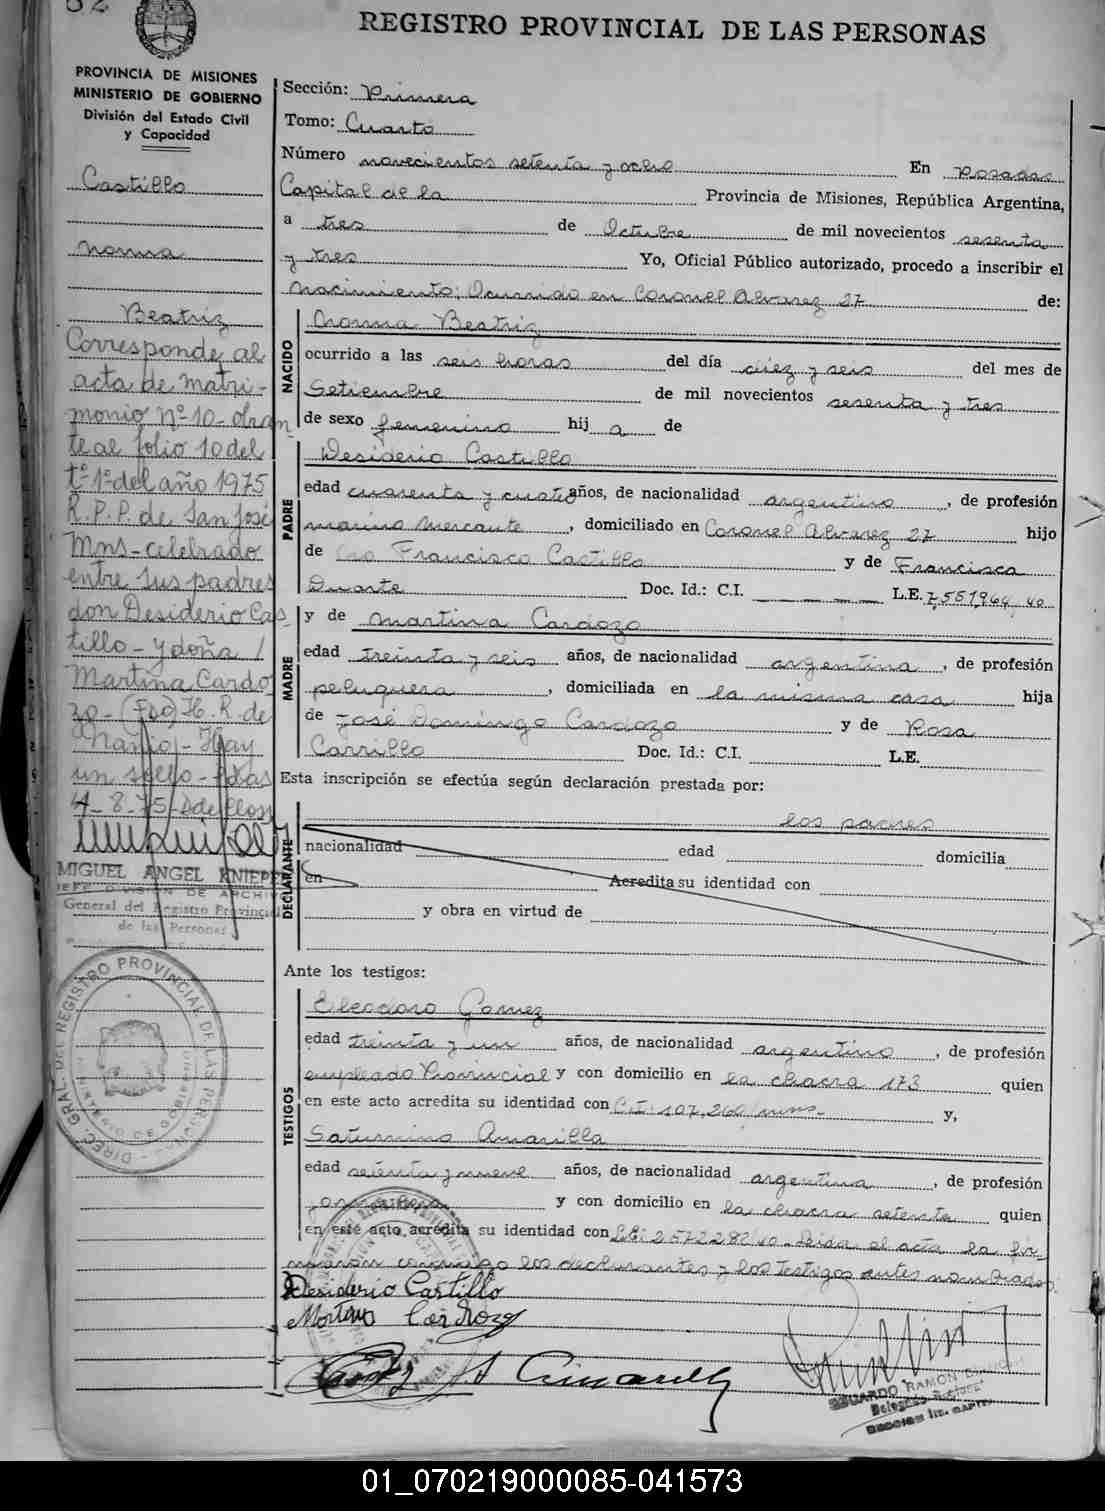 52
REGISTRO PROVINCIAL DE LAS PERSONAS
PROVINCIA DE MISIONES
MINISTERIO DE GOBIERNO
División del Estado Civil
y Capacidad
Castillo
Norma
Beatriz
Corresponde al
acta de matri-
monio Nº 10 - obran
te al folio 10 del
tº 1º del año 1975
R.P.P. de San José
Mns - celebrado
entre sus padres
don Desiderio Cas
tillo - y doña
Martina Cardo
zo - (Fdo) H. R. de
Hay
un sello - Pdas
4-8-75
MIGUEL ANGEL KNIEPE
JEFE DIVISION DE ARCHIV
General del Registro Provincial
de las Personas
DIREC. GRAL. DEL REGISTRO PROVINCIAL DE LAS PERSONAS
MINISTERIO DE GOBIERNO
Sección: Primera
Tomo: Cuarto
Número novecientos setenta y ocho En Posadas
Capital de la Provincia de Misiones, República Argentina,
a tres de Octubre de mil novecientos sesenta
y tres Yo, Oficial Público autorizado, procedo a inscribir el
Nacimiento: Ocurrido en Coronel Alvarez 27 de:
NACIDO
Norma Beatriz
ocurrido a las seis horas del día diez y seis del mes de
Setiembre de mil novecientos sesenta y tres
de sexo femenino hij a de
PADRE
Desiderio Castillo
edad cuarenta y cuatro años, de nacionalidad argentino, de profesión
marino mercante, domiciliado en Coronel Alvarez 27 hijo
de Francisco Castillo y de Francisca
Duarte Doc. Id.: C.I. L.E. 7,551,964
MADRE
y de Martina Cardozo
edad treinta y seis años, de nacionalidad argentina, de profesión
peluquera, domiciliada en la misma casa hija
de José Domingo Cardozo y de Rosa
Carrillo Doc. Id.: C.I. L.E.
Esta inscripción se efectúa según declaración prestada por:
DECLARANTE
los padres
nacionalidad edad domicilia
en Acredita su identidad con
y obra en virtud de
Ante los testigos:
TESTIGOS
Eleodoro Gomez
edad treinta y un años, de nacionalidad argentino, de profesión
empleado Provincial y con domicilio en la chacra 173 quien
en este acto acredita su identidad con C.I: 107,260 mns- y,
Saturnino Amarilla
edad setenta y nueve años, de nacionalidad argentina, de profesión
y con domicilio en la chacra setenta quien
en este acto acredita su identidad con L.E: 2572282 Leida el acta la fir-
maron conmigo los declarantes y los testigos antes nombrados
Desiderio Castillo
Cardozo
EDUARDO RAMON
Delegado
01_070219000085-041573